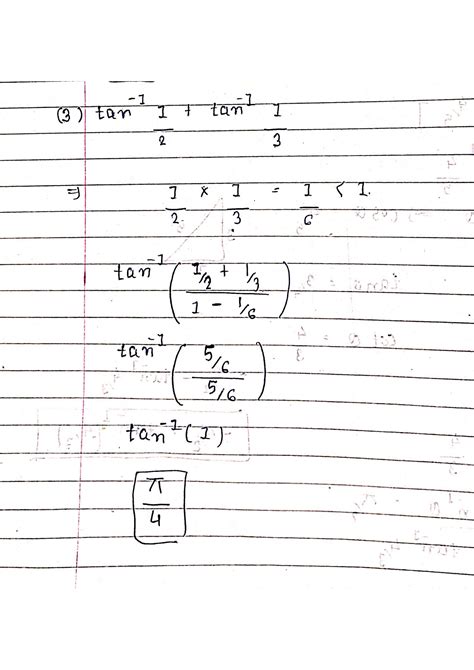 (3) tan⁻¹ 1/2 + tan⁻¹ 1/3
⇒ 1/2 × 1/3 = 1/6 < 1.
tan⁻¹ ( (1/2 + 1/3) / (1 - 1/6) )
tan⁻¹ ( (5/6) / (5/6) )
tan⁻¹ (1)
π/4